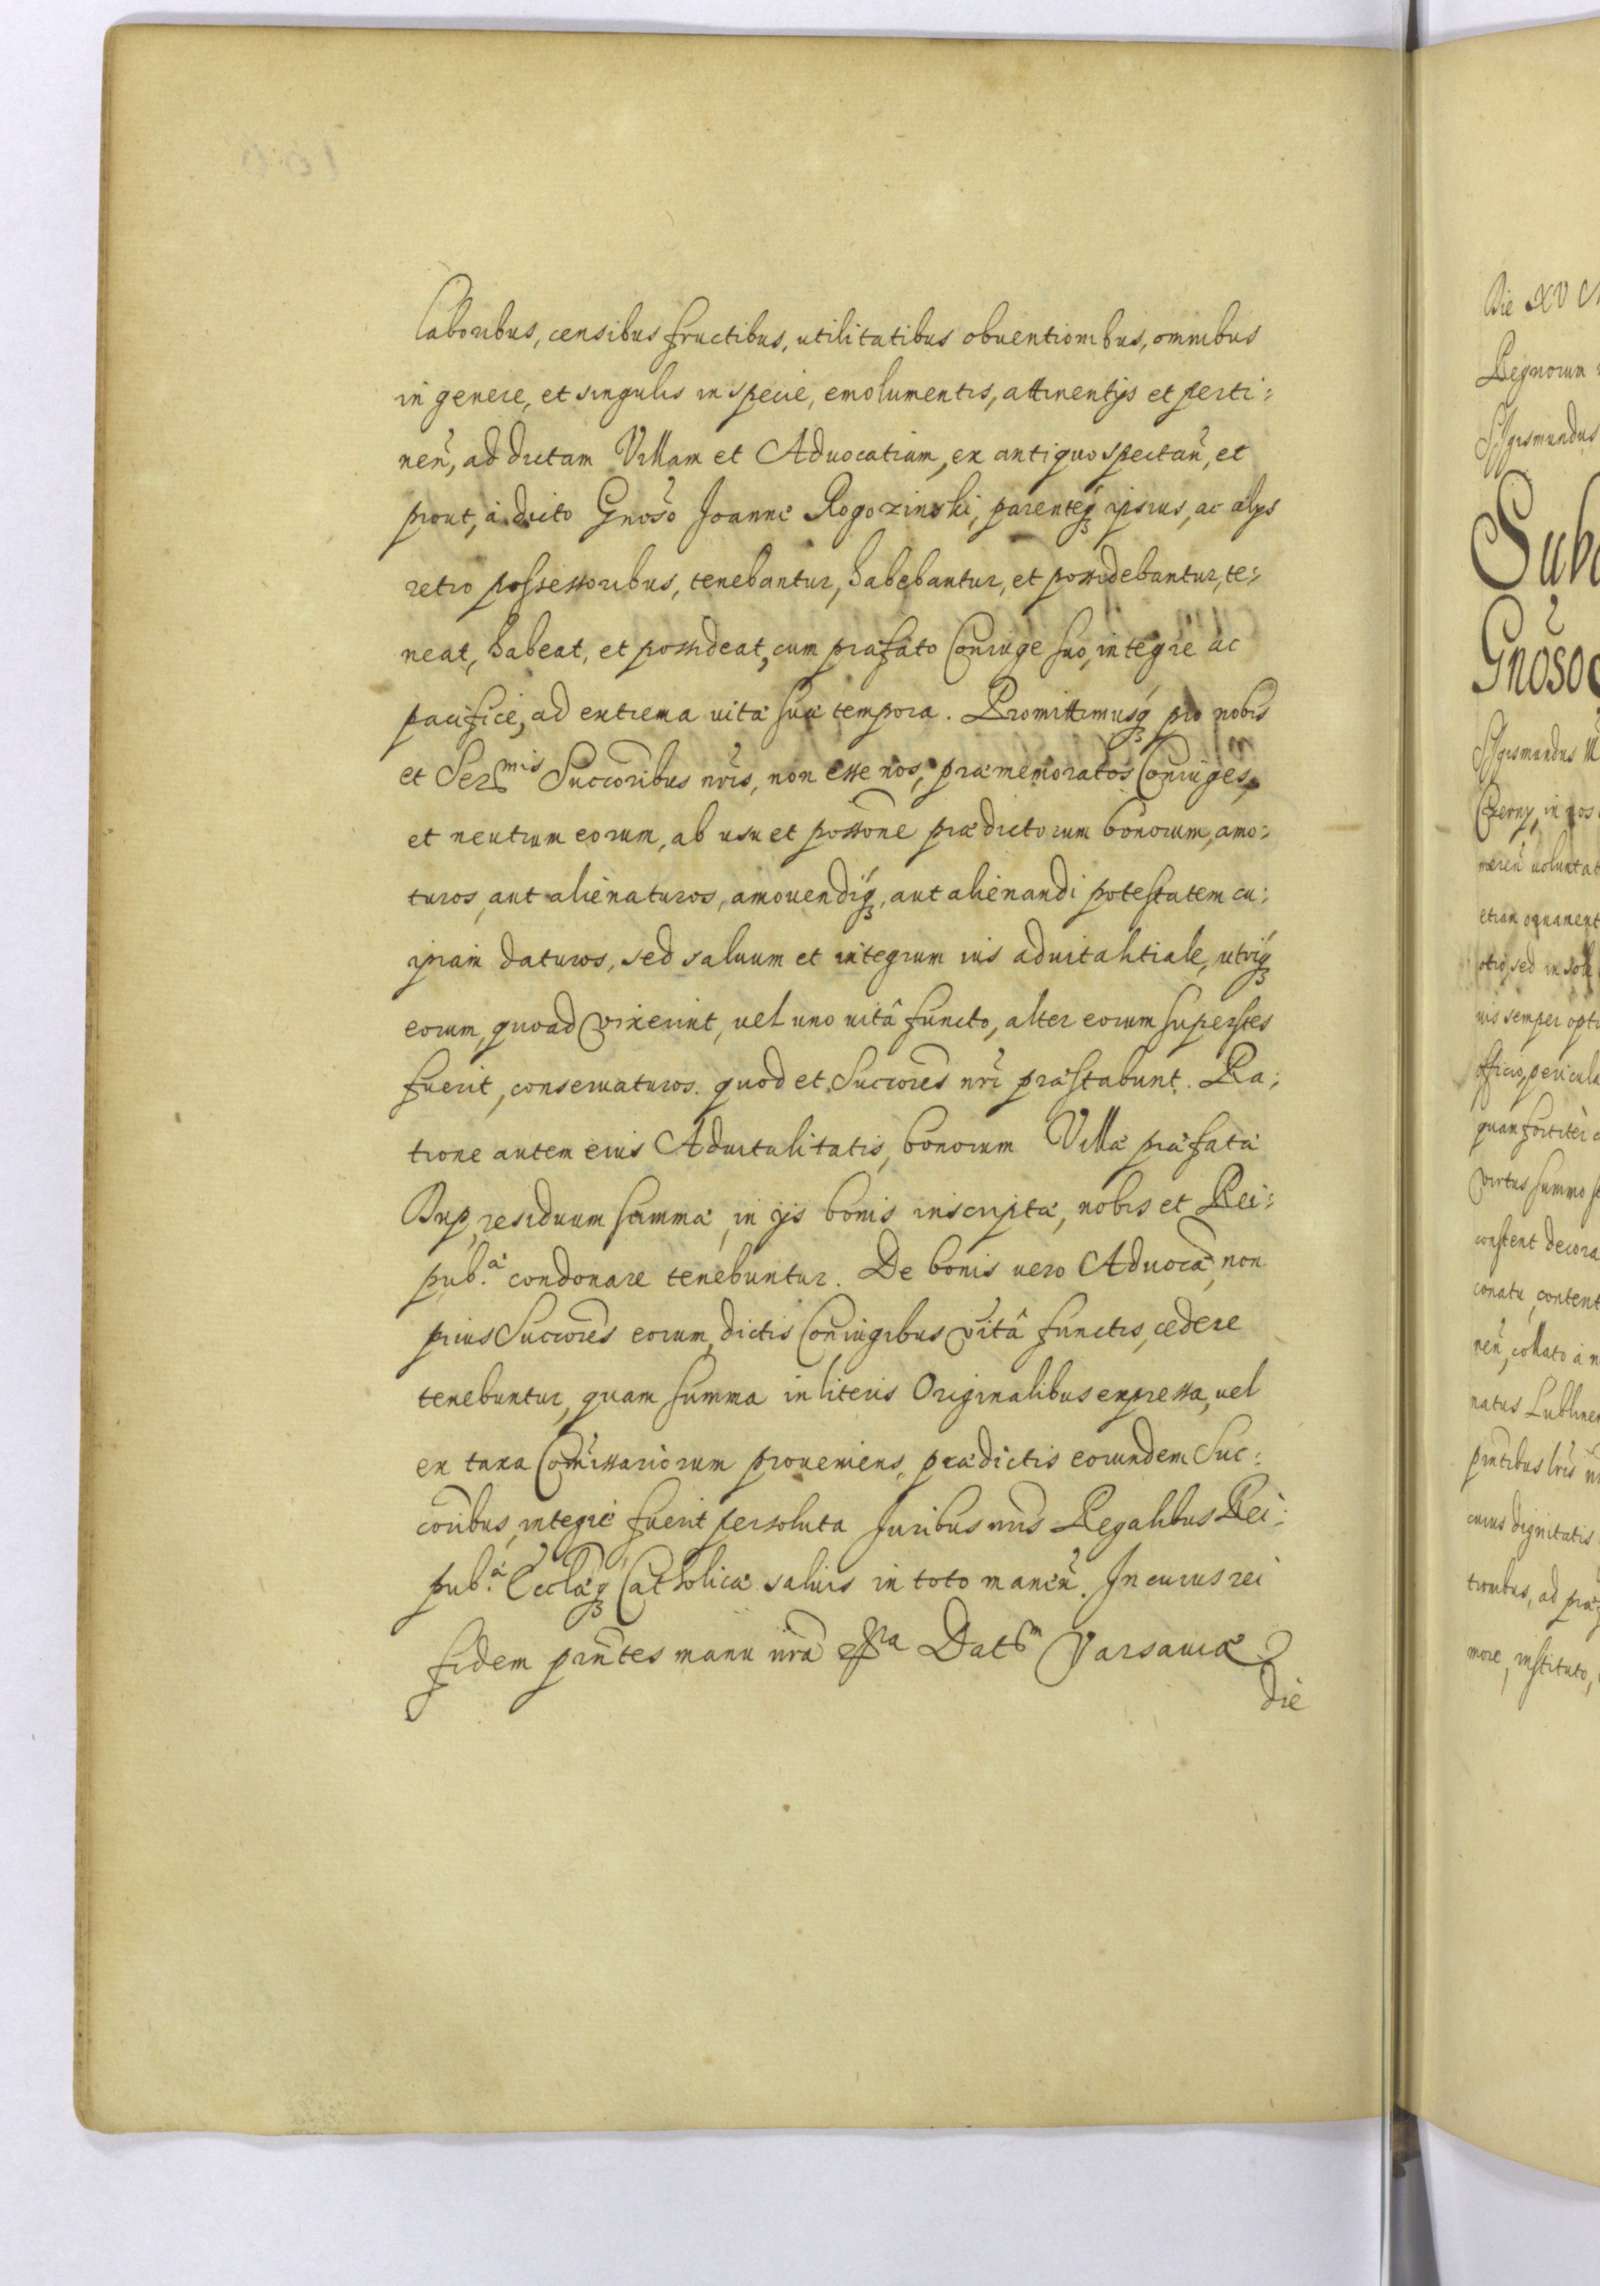 laboribus, censibus fructibus, utilitatibus obuentionibus, omnibus
in genere, et singulis in specie, emolumentis, attinentijs et perti:
neñ, ad dictam Villam et Aduocatiam, ex antiquo spectañ, et
prout, à dicto Gnoso Joanne Rogozinski, parenteq́ȝ ipsius, ac alijs
retro possessoribus, tenebantur, habebantur, et possidebantur, te:
neat, habeat, et possideat, cum præfato Coniuge suo, integrè ac
pacificè, ad extrema uitæ suæ tempora. Promittimusq́ȝ pro nobis
et Ser.mis Succoribus nris, non esse nos, præmemoratos Coniuges,
et neutrum eorum, ab usu et possone prædictorum bonorum, amo:
turos, aut alienaturos, amouendiq́ȝ, aut alienandi potestatem cu:
ipiam daturos, sed saluum et integrum ius aduitalitiale, utriq́ȝ
eorum, quoad vixerint, uel uno uitâ functo, alter eorum superstes
fuerit, conseruaturos. quod et Succores nri præstabunt. Ra:
tione autem eius Aduitalitatis, bonorum Villæ præfatæ
residuum summæ, in ijs bonis inscriptæ, nobis et Rei:
pub.æ condonare tenebuntur. De bonis uero Aduocã, non
prius Succores eorum, dictis Coniugibus vitâ functis, cedere
tenebuntur, quam summa in literis Originalibus expressa, uel
ex taxa Comissariorum proueniens, prædictis eorundem Suc:
coribus, integrè fuerit persoluta Juribus nris Regalibus Rei:
pub.æ Ecclæq́ȝ Catholicæ saluis in toto maneñ. In cuius rei
fidem pñtes manu nrã Dat.m Varsauiæ
die
Die XV
Regnorum
Sigismundus
Gnoso
Sigismundus
Czerny, in nos
mereñ uoluntat
etiam ornament
otio, sed in
uis semper opt
officio, pericula
quam fortiter
virtus summo
constent decora
conatu, content
neñ, collato à n
natus Lublinen
pñtibus lris
cuius dignitatis
tionibus, ad præ
more, instituto,